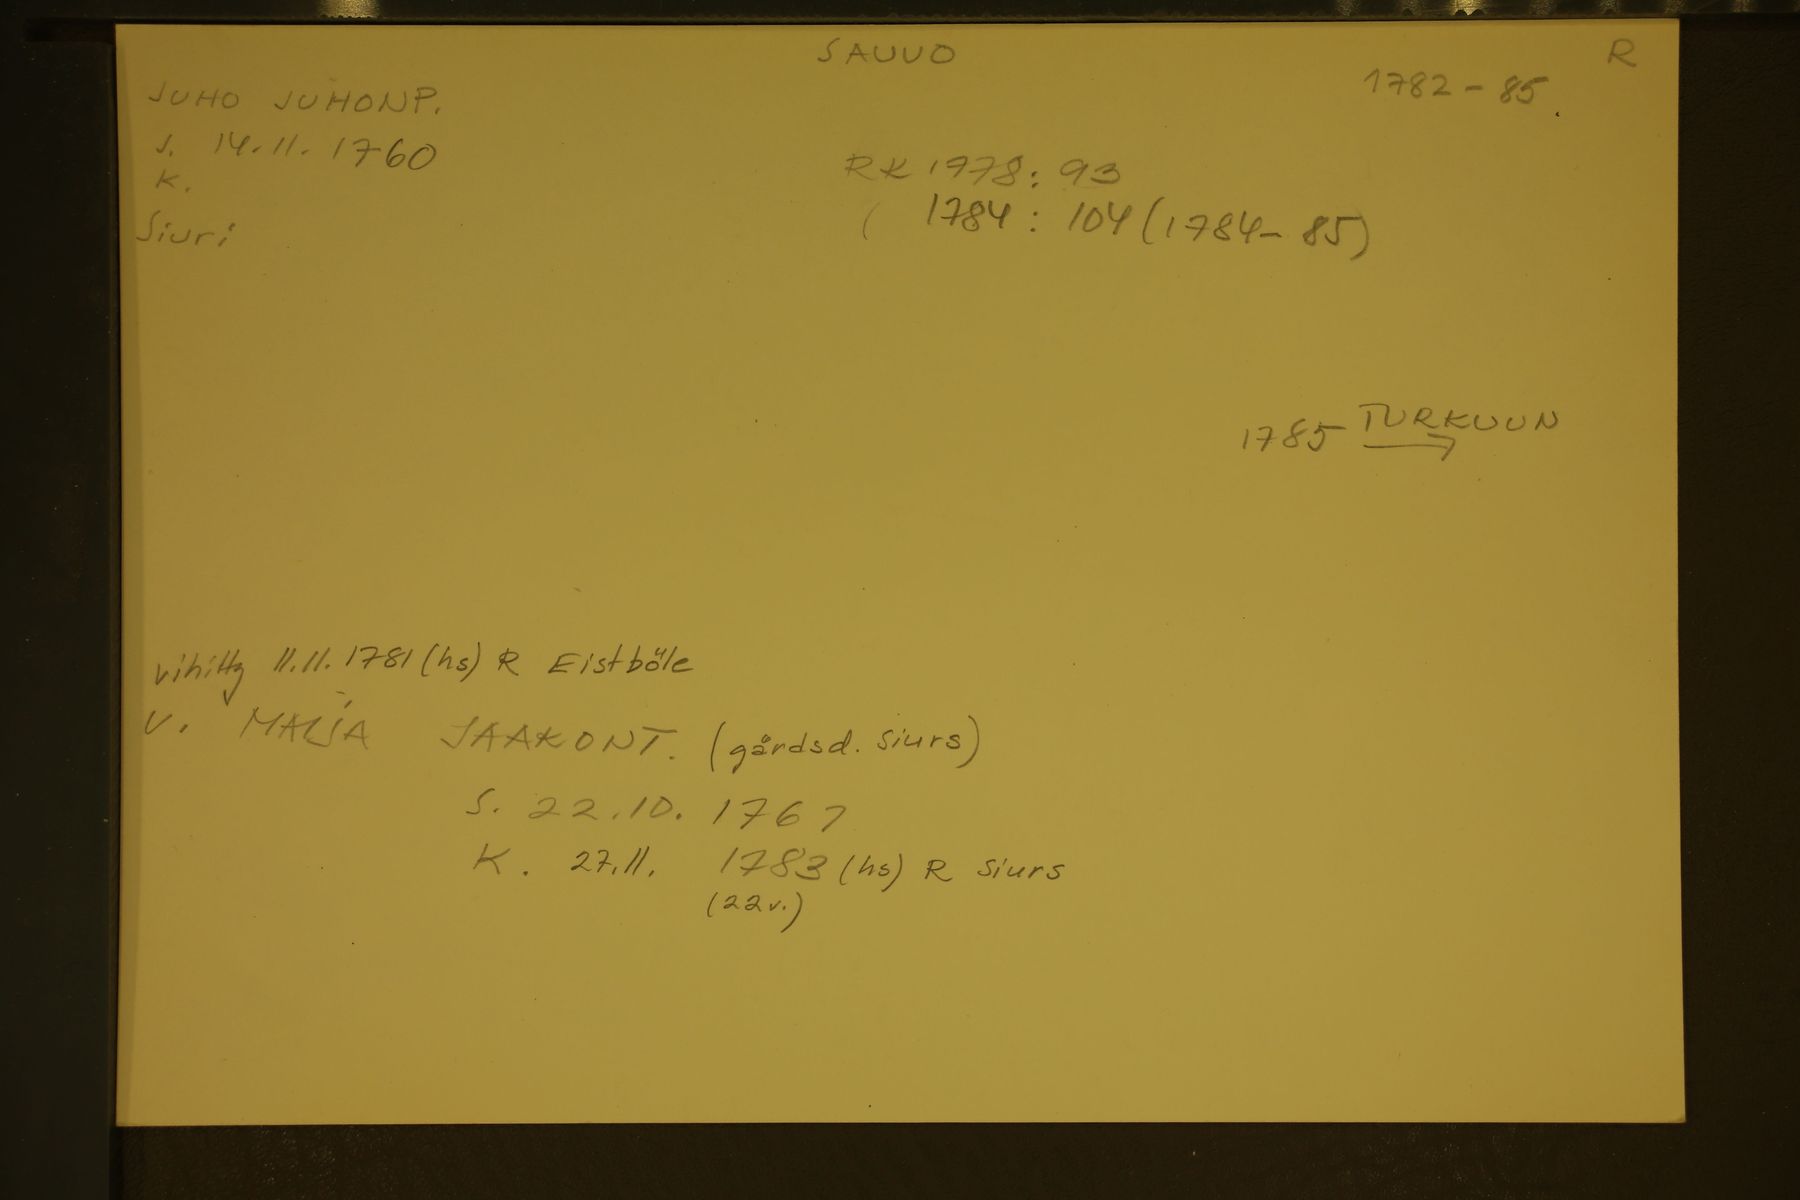 SAUVO
R
JUHO JUHONP.
1782 - 85.
s. 14.11. 1760
K.
RK 1978: 93
( 1784: 104 (1784- 85)
Siuri
1785 TURKUUN
vihitty 11.11.1781 (hs) R Eistböle
V. MAIJA JAAKONT. (gårdsd. Siurs)
S. 22.10. 1767
K. 27.11. 1783 (hs) R Siurs
(22 v.)